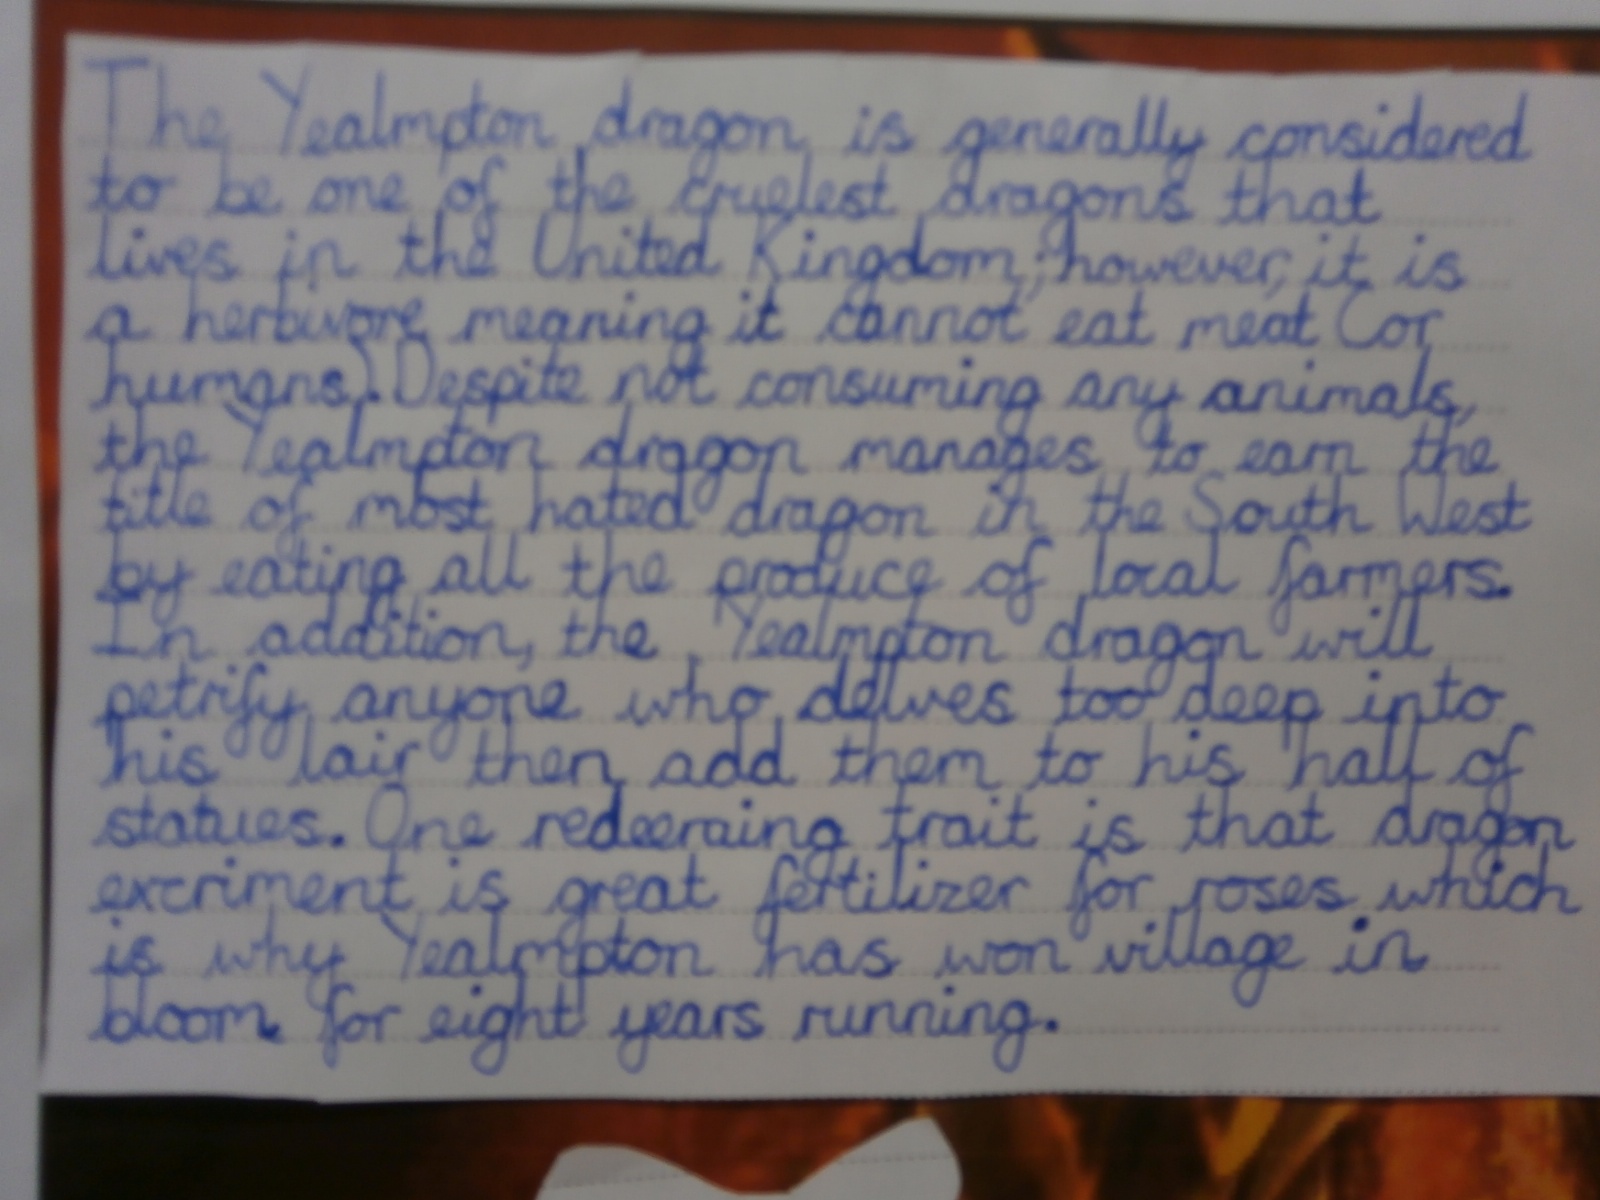 The Yealmpton dragon is generally considered
to be one of the cruelest dragons that
lives in the United Kingdom; however, it is
a herbivore meaning it cannot eat meat (or
humans). Despite not consuming any animals,
the Yealmpton dragon manages to earn the
title of most hated dragon in the South West
by eating all the produce of local farmers.
In addition, the Yealmpton dragon will
petrify anyone who delves too deep into
his lair then add them to his hall of
statues. One redeeming trait is that dragon
excriment is great fertilizer for roses which
is why Yealmpton has won village in
bloom for eight years running.